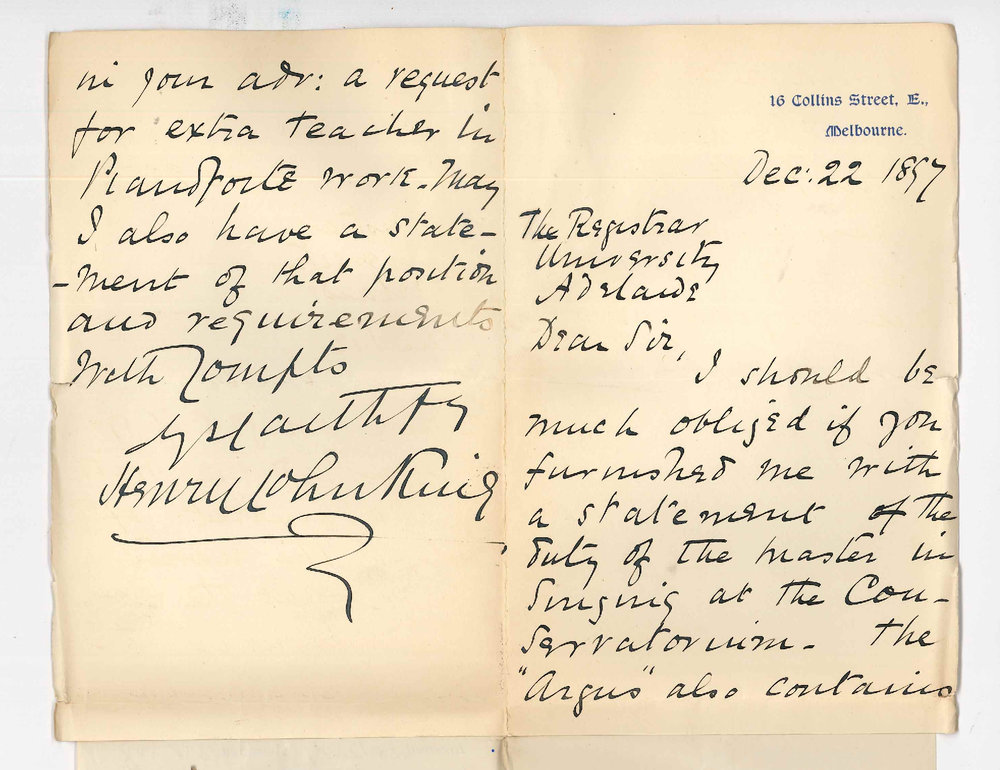 16 Collins Street, E.,
Melbourne.
Dec: 22 1897
The Registrar
University
Adelaide
Dear Sir,
I should be
much obliged if you
furnished me with
a statement of the
duty of the master in
Singing at the Con-
servatorium - The
"Argus" also contains
in your adv: a request
for extra teacher in
Pianoforte work. May
I also have a state-
-ment of that position
and requirements
With Compts
Yrs faithfy
Henry John King